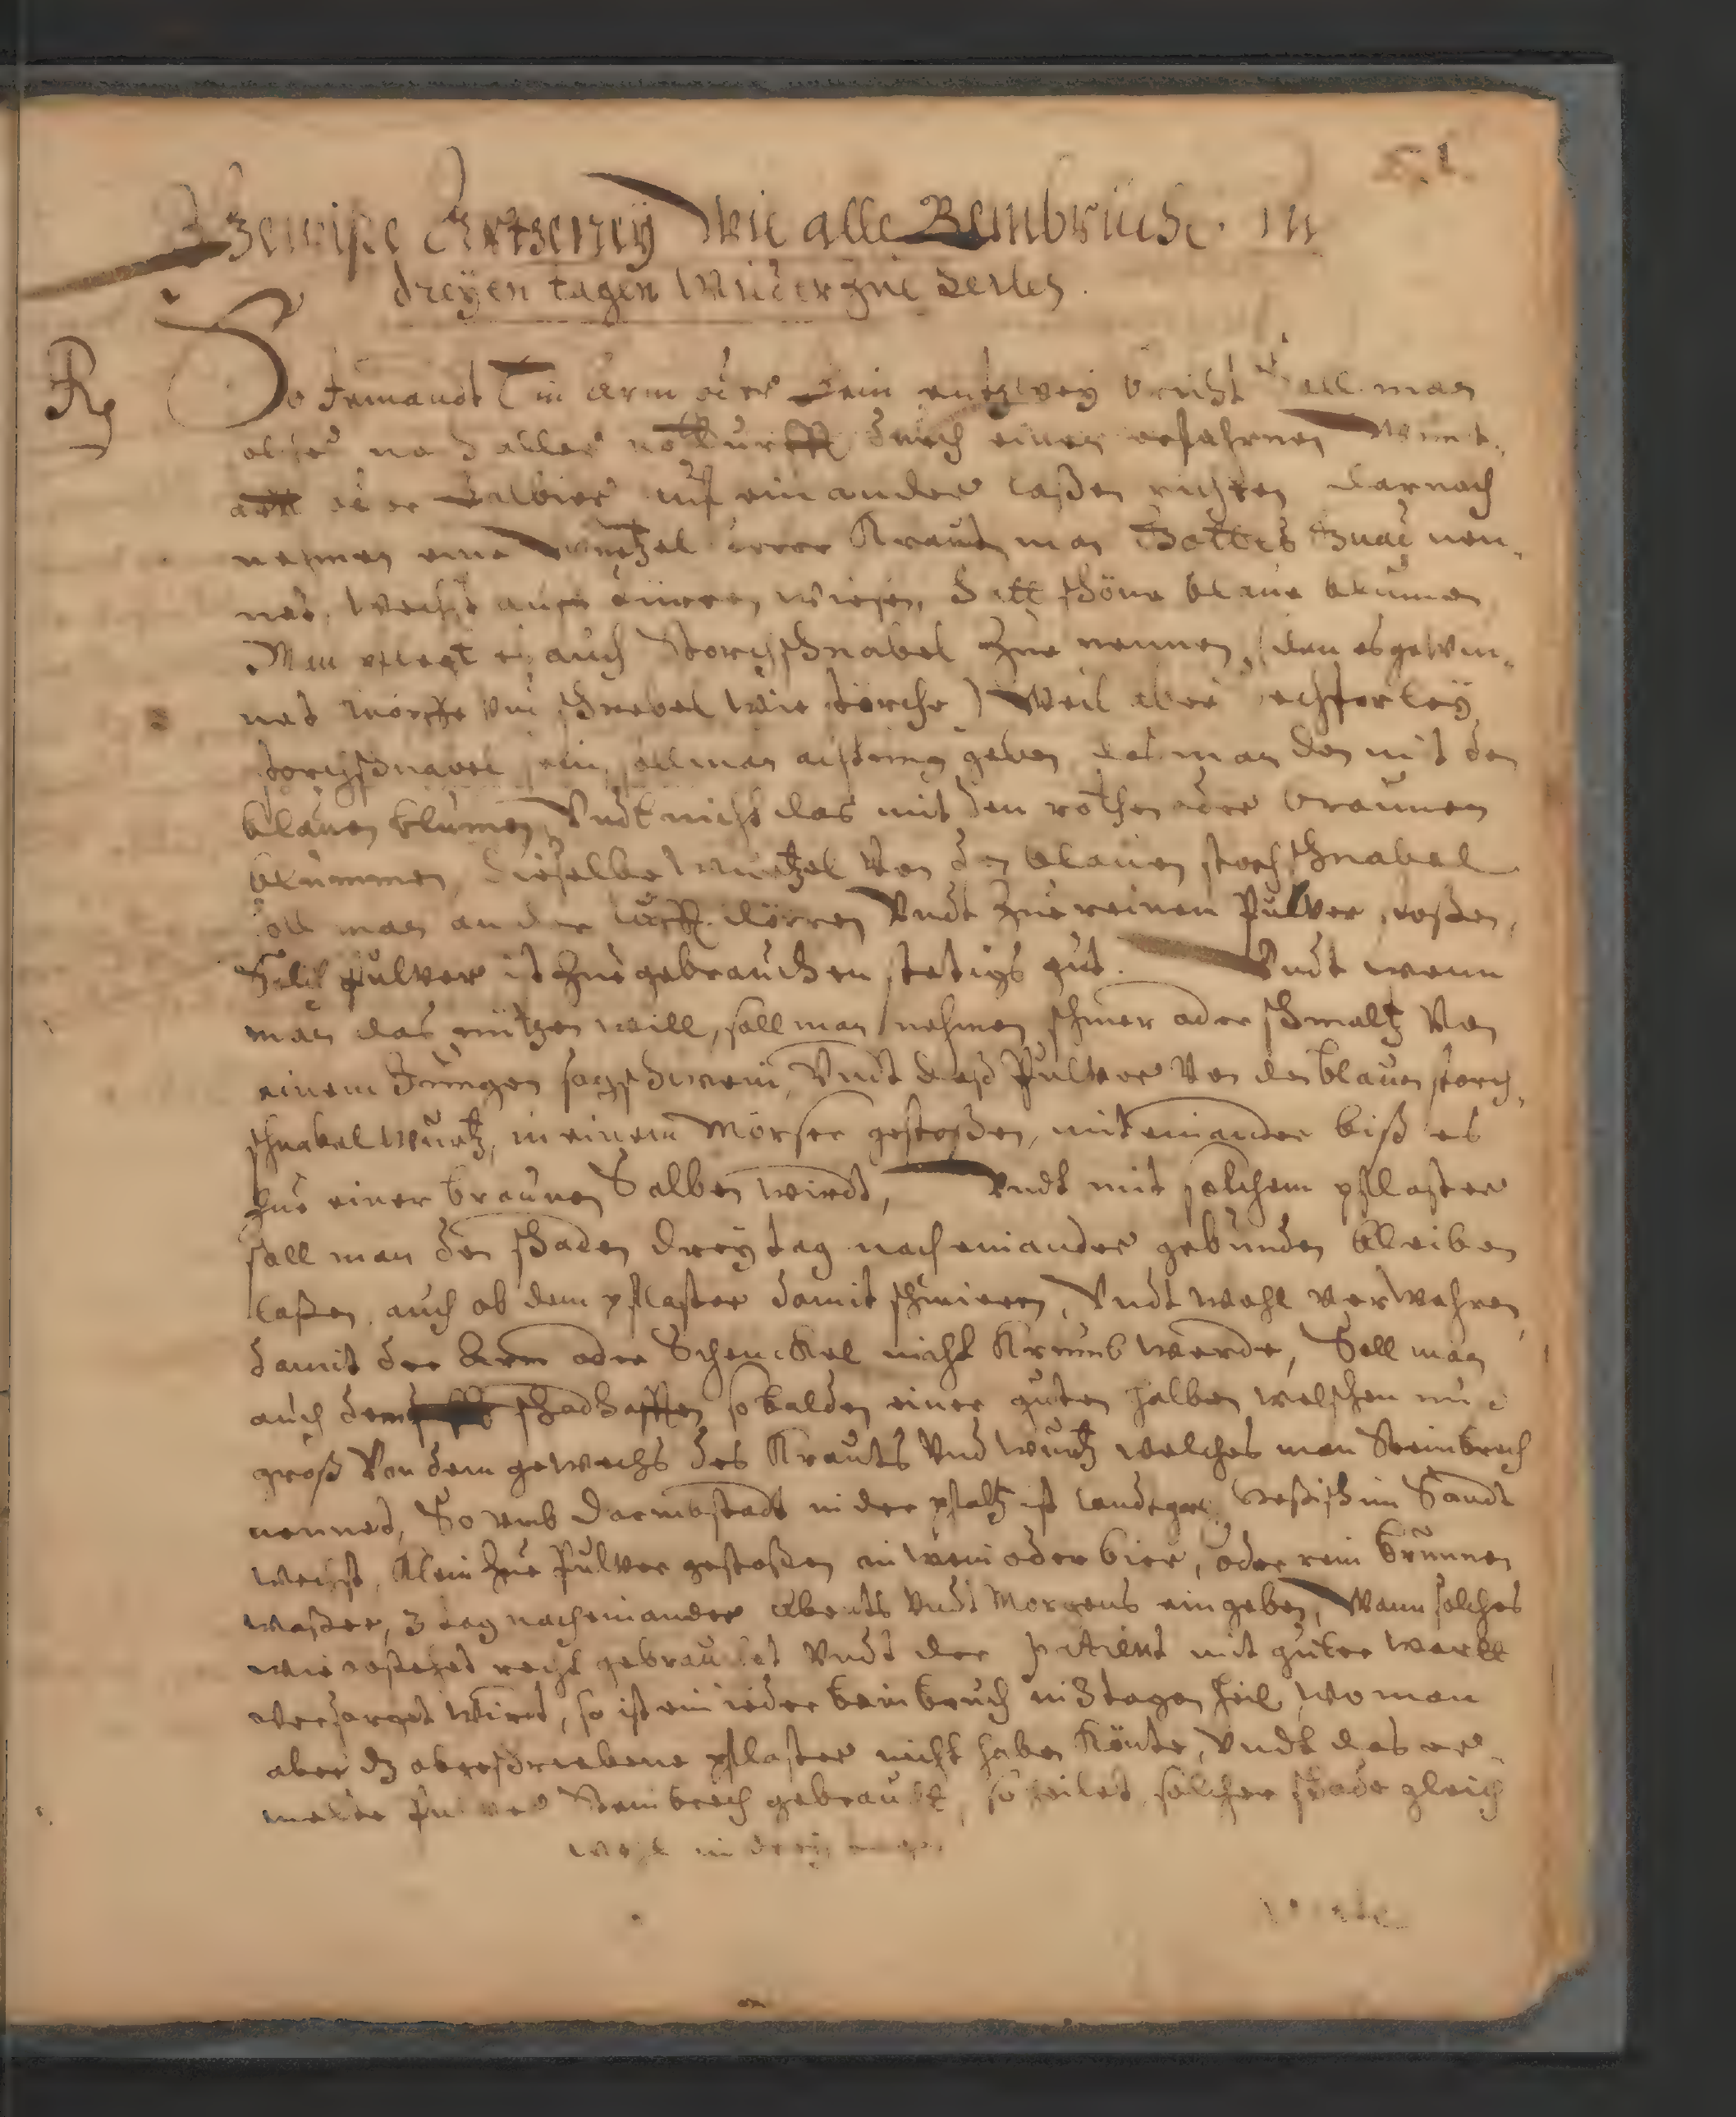 Gewiße Artzeney Wie alle Beinbrüche in
dreyen tagen wider zue heilen.
Rg So Jemandt Ein Arm oder Bein entzwey bricht soll man
nach aller notturfft durch einen erfahrnen Wundt-
artt oder Balbier uf einander laßen richten darnach
nehmen eine Wurtzel deren Kraut man Gottes Gnad nen-
net, wechst auff dürren wiesen, hatt schöne blaue blumen
Man pflegt es auch Storchschnabel zue nennen, (den es gewin-
net Köpffe und schnebel wie störche) Weil aber achterley
storchschnabel sein, soll man achtung geben das man den mit den
blauen blumen Undt nicht das mit den rothen oder braunen
blummen, dieselbe wurtzel Von den blauen storchschnabel
soll man an der lufft dörren Undt zue reinen Pulver stoßen,
Solch pulver ist zue gebrauchen stetigs gut. Undt wenn
man das nützen will, soll man nehmen schmer oder schmaltz Von
einem Jungen sogschwein, Undt daß Pulver Von den blauen storch-
schnabel wurtz, in einem Mörser gestoßen, mit einander biß es
zue einer braunen Salben wirdt, Undt mit solchem pflaster
soll man den schaden drey tag nach einander gebunden bleiben
laßen, auch ob dem pflaster damit schmieren, Undt wohl verwahren,
damit der Arm oder Schenckel nicht Krumb werde, Soll man
auch dem schadhafften sobalden einer guten halben welschen nuß
groß Von dem gewechs des Krauts Und wurtz welches man Steinbrech
nennet, So umb Darmbstadt in der pfaltz ist landtgrä. Heßisch im Sandt
wechst, Klein zue Pulver gestoßen in wein oder bier, oder rein brunnen
waßer, 3 tag nach einander Abents Undt Morgens eingeben, Wann solches
wie vorstehet recht gebrauchet Undt der patient mit guter wartt
versorget wirdt, so ist ein ieder beinbruch in 3 tagen heil, wo man
aber dz obgeschriebene pflaster nicht haben Könte, Undt das er-
melte Pulver Steinbrech gebraucht, so heilet solcher schade gleich
wohl in drey tagen